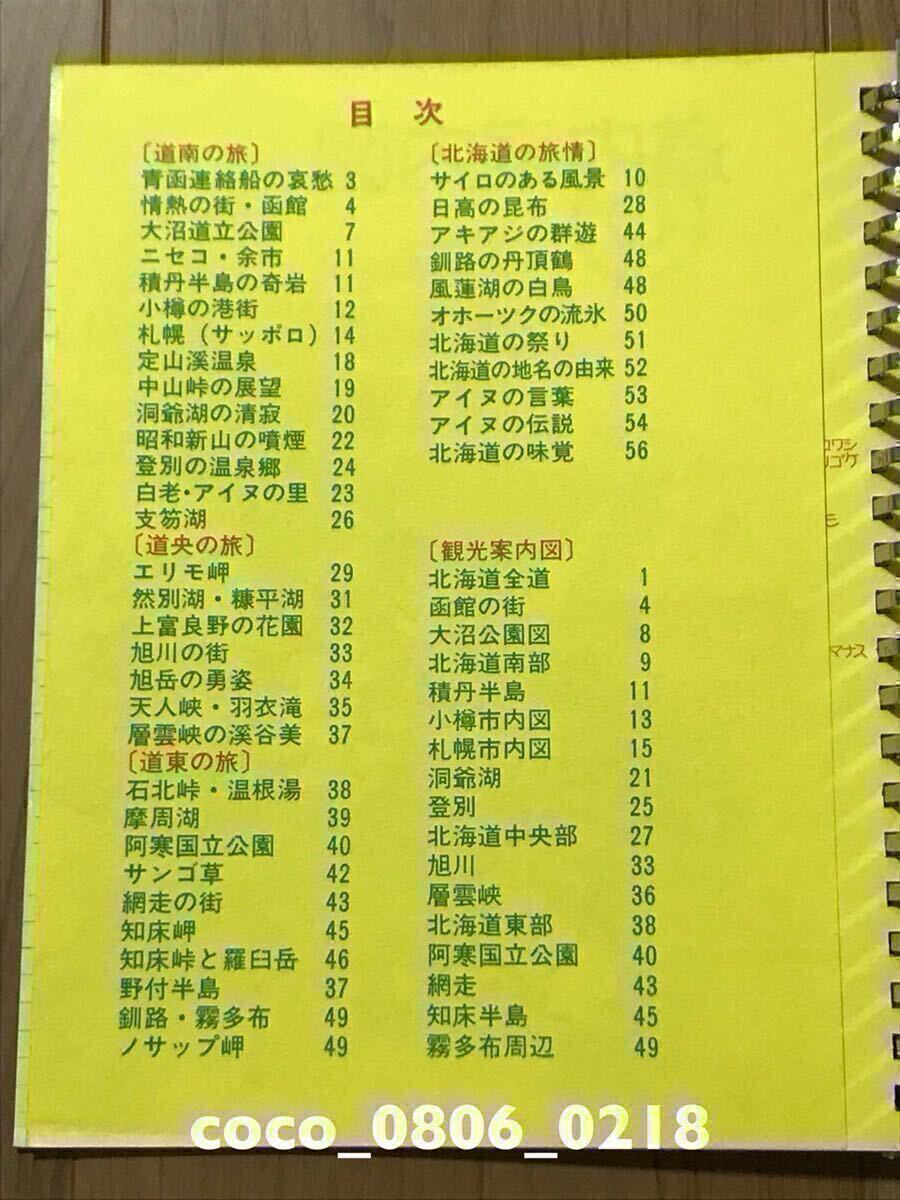 目 次
〔道南の旅〕
青函連絡船の哀愁 3
情熱の街・函館 4
大沼道立公園 7
ニセコ・余市 11
積丹半島の奇岩 11
小樽の港街 12
札幌(サッポロ) 14
定山溪温泉 18
中山峠の展望 19
洞爺湖の清寂 20
昭和新山の噴煙 22
登別の温泉郷 24
白老・アイヌの里 23
支笏湖 26
〔道央の旅〕
エリモ岬 29
然別湖・糠平湖 31
上富良野の花園 32
旭川の街 33
旭岳の勇姿 34
天人峡・羽衣滝 35
層雲峡の溪谷美 37
〔道東の旅〕
石北峠・温根湯 38
摩周湖 39
阿寒国立公園 40
サンゴ草 42
網走の街 43
知床岬 45
知床峠と羅臼岳 46
野付半島 37
釧路・霧多布 49
ノサップ岬 49
〔北海道の旅情〕
サイロのある風景 10
日高の昆布 28
アキアジの群遊 44
釧路の丹頂鶴 48
風蓮湖の白鳥 48
オホーツクの流氷 50
北海道の祭り 51
北海道の地名の由来 52
アイヌの言葉 53
アイヌの伝説 54
北海道の味覚 56
〔観光案内図〕
北海道全道 1
函館の街 4
大沼公園図 8
北海道南部 9
積丹半島 11
小樽市内図 13
札幌市内図 15
洞爺湖 21
登別 25
北海道中央部 27
旭川 33
層雲峡 36
北海道東部 38
阿寒国立公園 40
網走 43
知床半島 45
霧多布周辺 49
マナス
coco_0806_0218